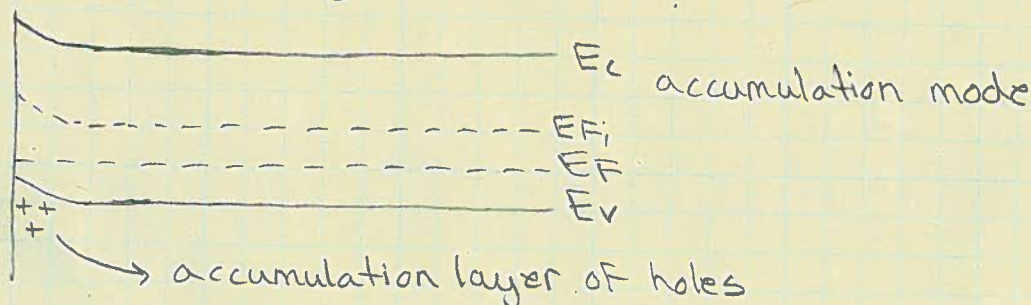 Ec
accumulation mode
EFi
EF
Ev
++
+
accumulation layer of holes